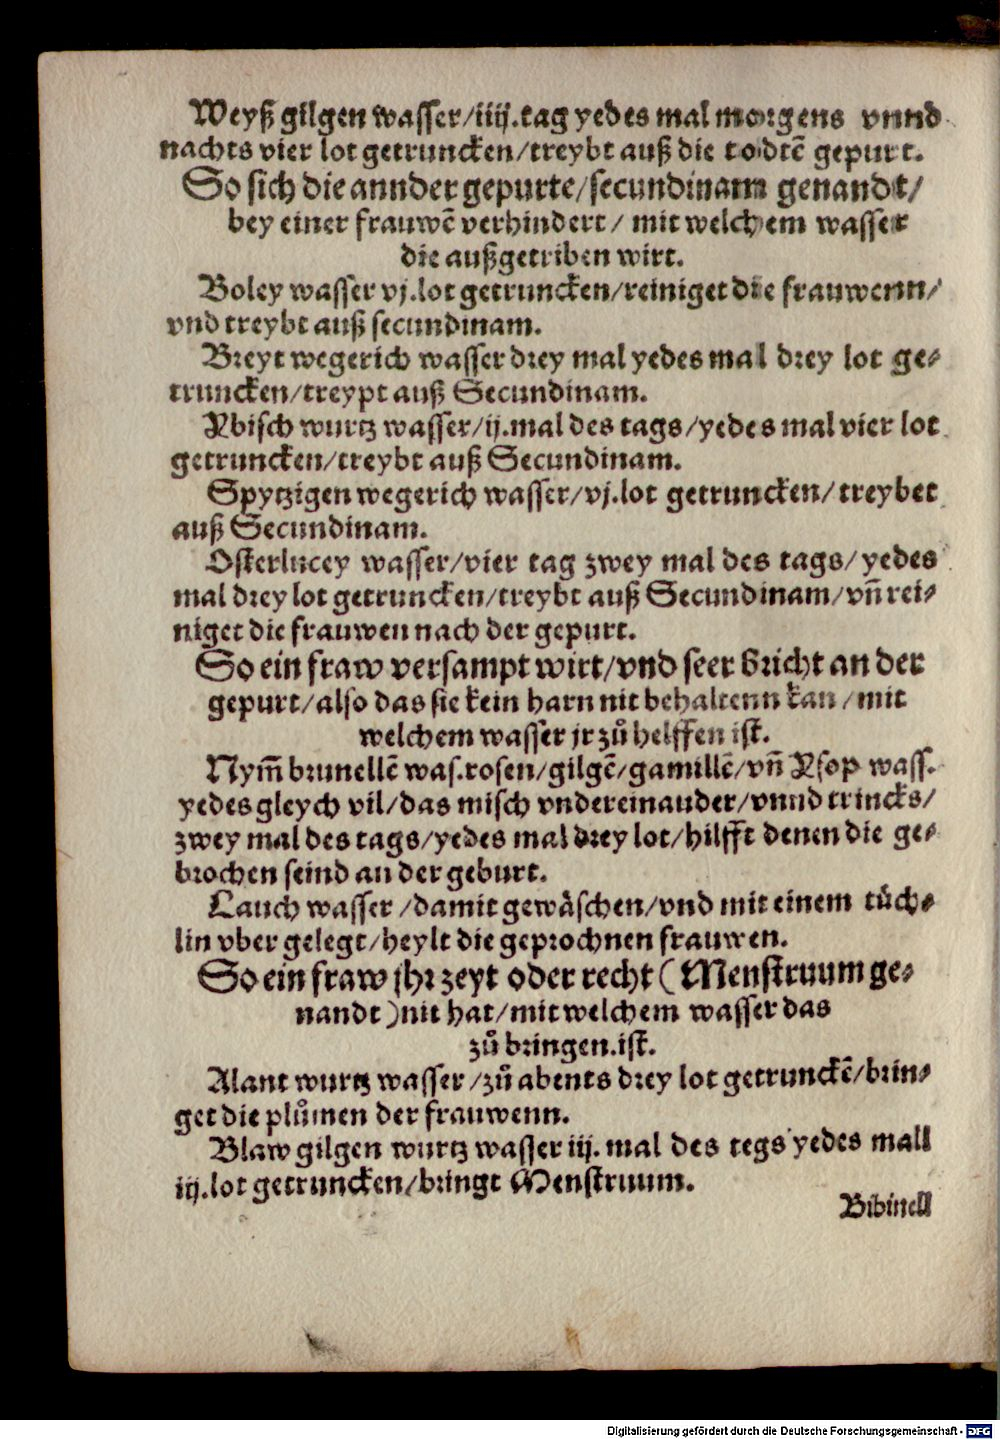 Weyß gilgen wasser/iiij.tag yedes mal morgens vnnd
nachts vier lot getruncken/treybt auß die todtē gepurt.
So sich die annder gepurte/secundinam genandt/
bey einer frauwē verhindert/ mit welchem wasser
die außgetriben wirt.
Boley wasser vj.lot getruncken/reiniget die frauwenn/
vnd treybt auß secundinam.
Breyt wegerich wasser drey mal yedes mal drey lot ge⸗
truncken/treypt auß Secundinam.
Ybisch wurtz wasser/ij.mal des tags/yedes mal vier lot
getruncken/treybt auß Secundinam.
Spytzigen wegerich wasser/vj.lot getruncken/treybet
auß Secundinam.
Osterlucey wasser/vier tag zwey mal des tags/yedes
mal drey lot getruncken/treybt auß Secundinam/vn̄ rei⸗
niget die frauwen nach der gepurt.
So ein fraw versampt wirt/vnd seer bricht an der
gepurt/also das sie kein harn nit behaltenn kan/mit
welchem wasser jr zů helffen ist.
Nym̄ brunellē was.rosen/gilgē/gamillē/vn̄ Ysop wass.
yedes gleych vil/das misch vndereinander/vnnd trincks/
zwey mal des tags/yedes mal drey lot/hilfft denen die ge⸗
brochen seind an der geburt.
Lauch wasser/damit gewäschen/vnd mit einem tůch⸗
lin vber gelegt/heylt die geprochnen frauwen.
So ein fraw jhr zeyt oder recht (Menstruum ge⸗
nandt) nit hat/mit welchem wasser das
zů bringen.ist.
Alant wurtz wasser/zů abents drey lot getrunckē/brin⸗
get die plůmen der frauwenn.
Blaw gilgen wurtz wasser iij. mal des tegs yedes mall
iij.lot getruncken/bringt Menstruum.
Bibinell
Digitalisierung gefördert durch die Deutsche Forschungsgemeinschaft - DFG